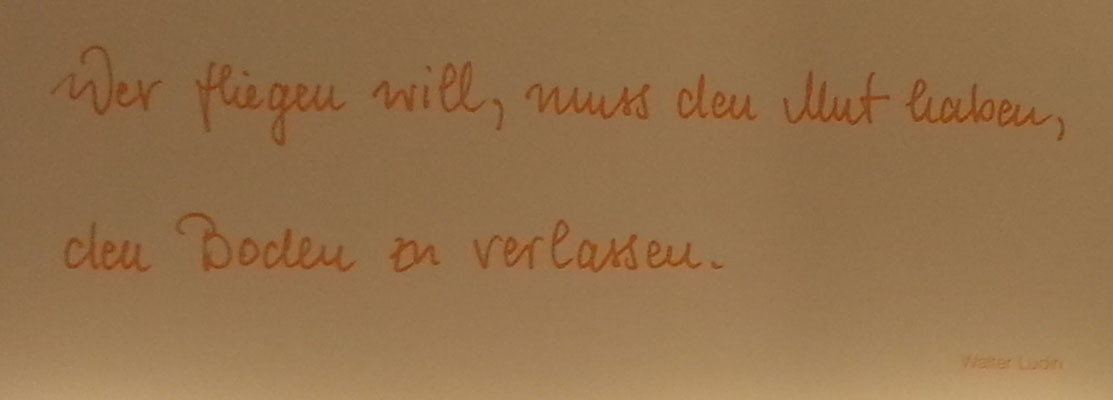 Wer fliegen will, muss den Mut haben,
den Boden zu verlassen.
Walter Ludin